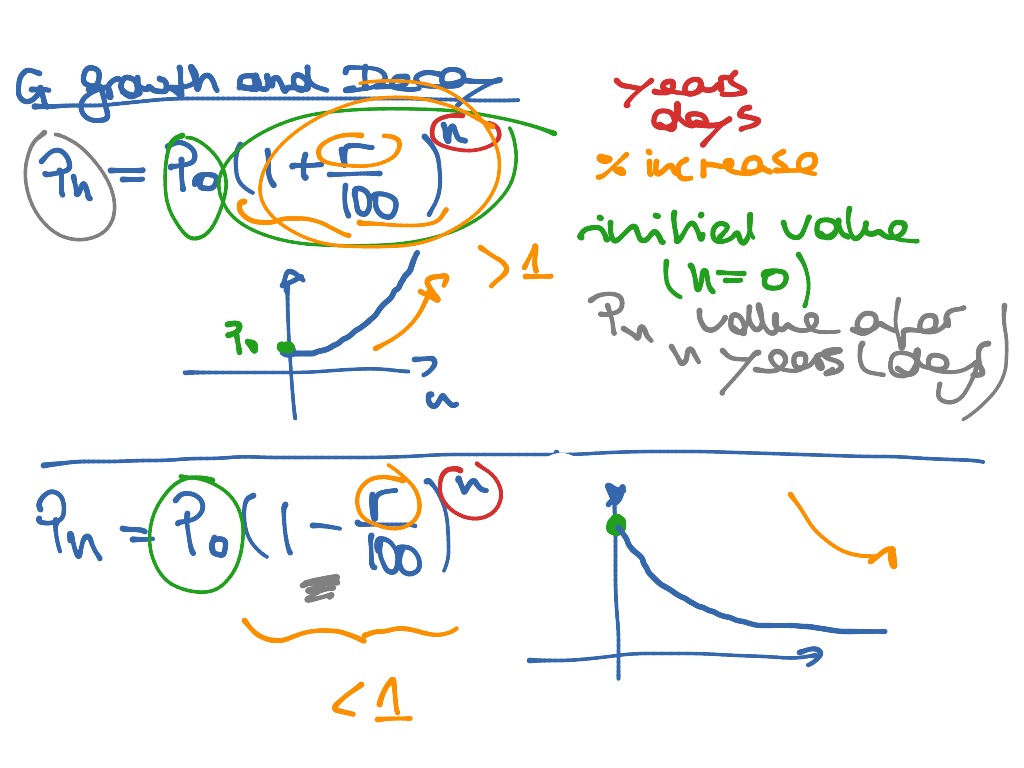 G growth and Decay
Pn = P0 (1 + r/100)^n
years
days
% increase
initial value
(n = 0)
Pn value after
n years (days)
> 1
P
n
Pn = P0 (1 - r/100)^n
< 1